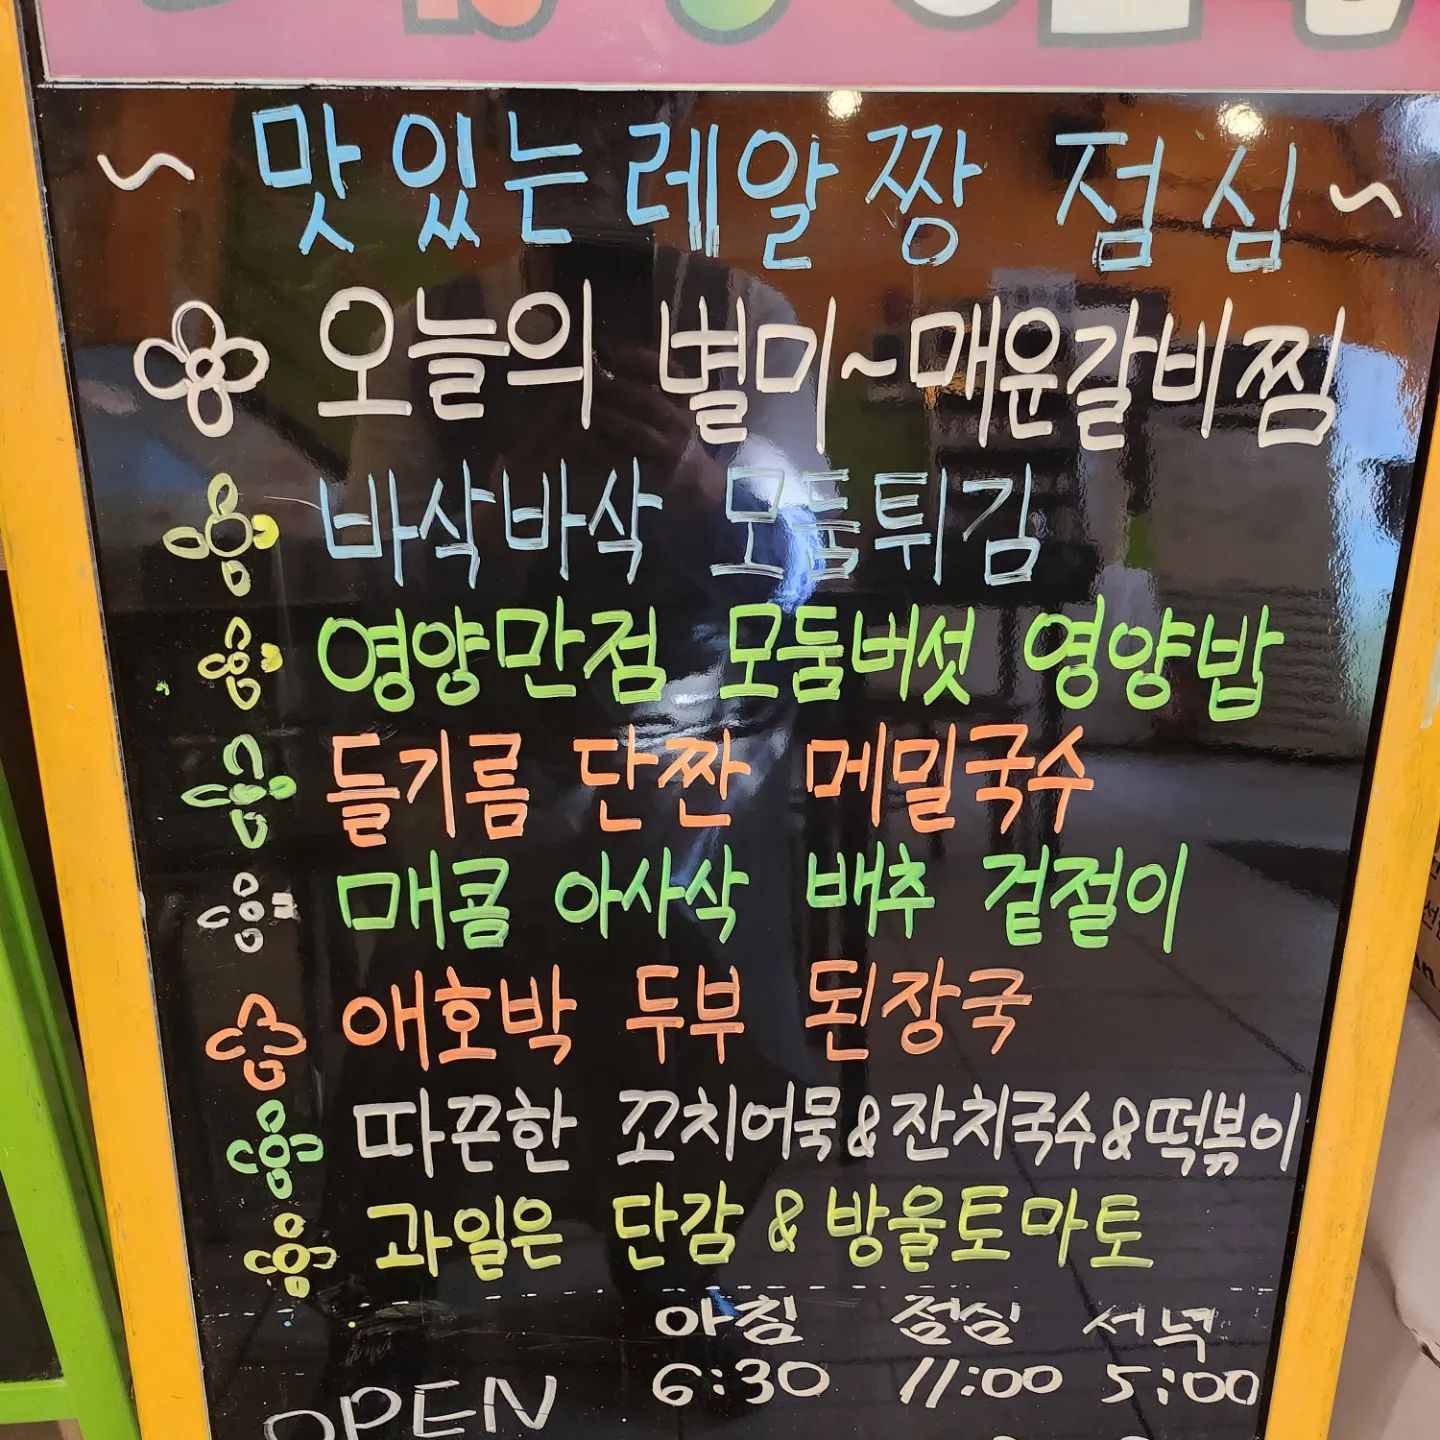 ~ 맛있는레알짱 점심 ~
오늘의 별미~매운갈비찜
바삭바삭 모둠튀김
영양만점 모둠버섯 영양밥
들기름 단짠 메밀국수
매콤 아사삭 배추 겉절이
애호박 두부 된장국
따끈한 꼬치어묵&잔치국수&떡볶이
과일은 단감 & 방울토마토
아침 점심 저녁
OPEN 6:30 11:00 5:00